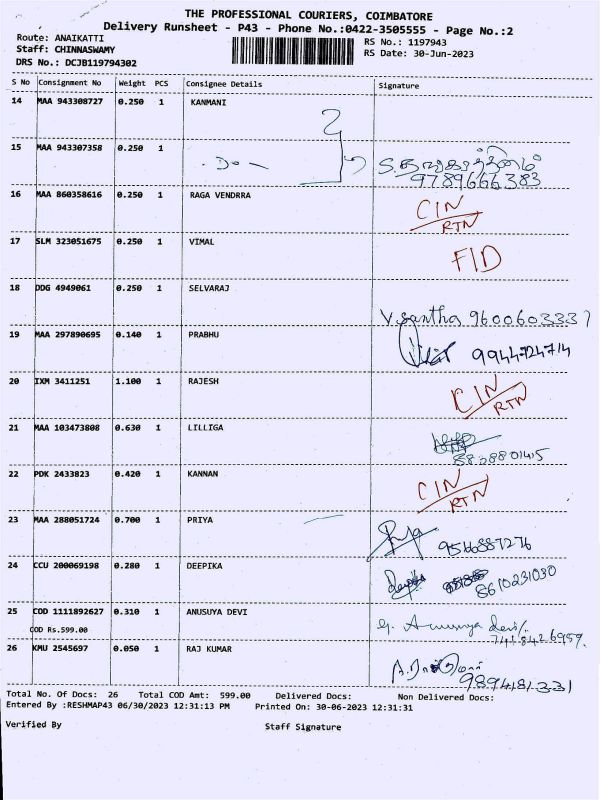 THE PROFESSIONAL COURIERS, COIMBATORE
Delivery Runsheet - P43 - Phone No.:0422-3505555 - Page No.:2
Route: ANAIKATTI
RS No.: 1197943
Staff: CHINNASWAMY
RS Date: 30-Jun-2023
DRS No.: DCJB119794302
S No Consignment No Weight PCS Consignee Details Signature
14 MAA 943308727 0.250 1 KANMANI
15 MAA 943307358 0.250 1 - Do -
9789666383
16 MAA 860358616 0.250 1 RAGA VENDRRA CIN/RTN
17 SLM 323051675 0.250 1 VIMAL FID
18 DDG 4949061 0.250 1 SELVARAJ
V. Santha 9600603337
19 MAA 297890695 0.140 1 PRABHU
9944724714
20 IXM 3411251 1.100 1 RAJESH CIN/RTN
21 MAA 103473808 0.630 1 LILLIGA
22 PDK 2433823 0.420 1 KANNAN CIN/RTN
23 MAA 288051724 0.700 1 PRIYA
9566887276
24 CCU 200069198 0.280 1 DEEPIKA
8610231030
25 COD 1111892627 0.310 1 ANUSUYA DEVI
COD Rs.599.00 Anusuya devi
26 KMU 2545697 0.050 1 RAJ KUMAR
9894181331
Total No. Of Docs: 26 Total COD Amt: 599.00 Delivered Docs: Non Delivered Docs:
Entered By :RESHMAP43 06/30/2023 12:31:13 PM Printed On: 30-06-2023 12:31:31
Verified By Staff Signature